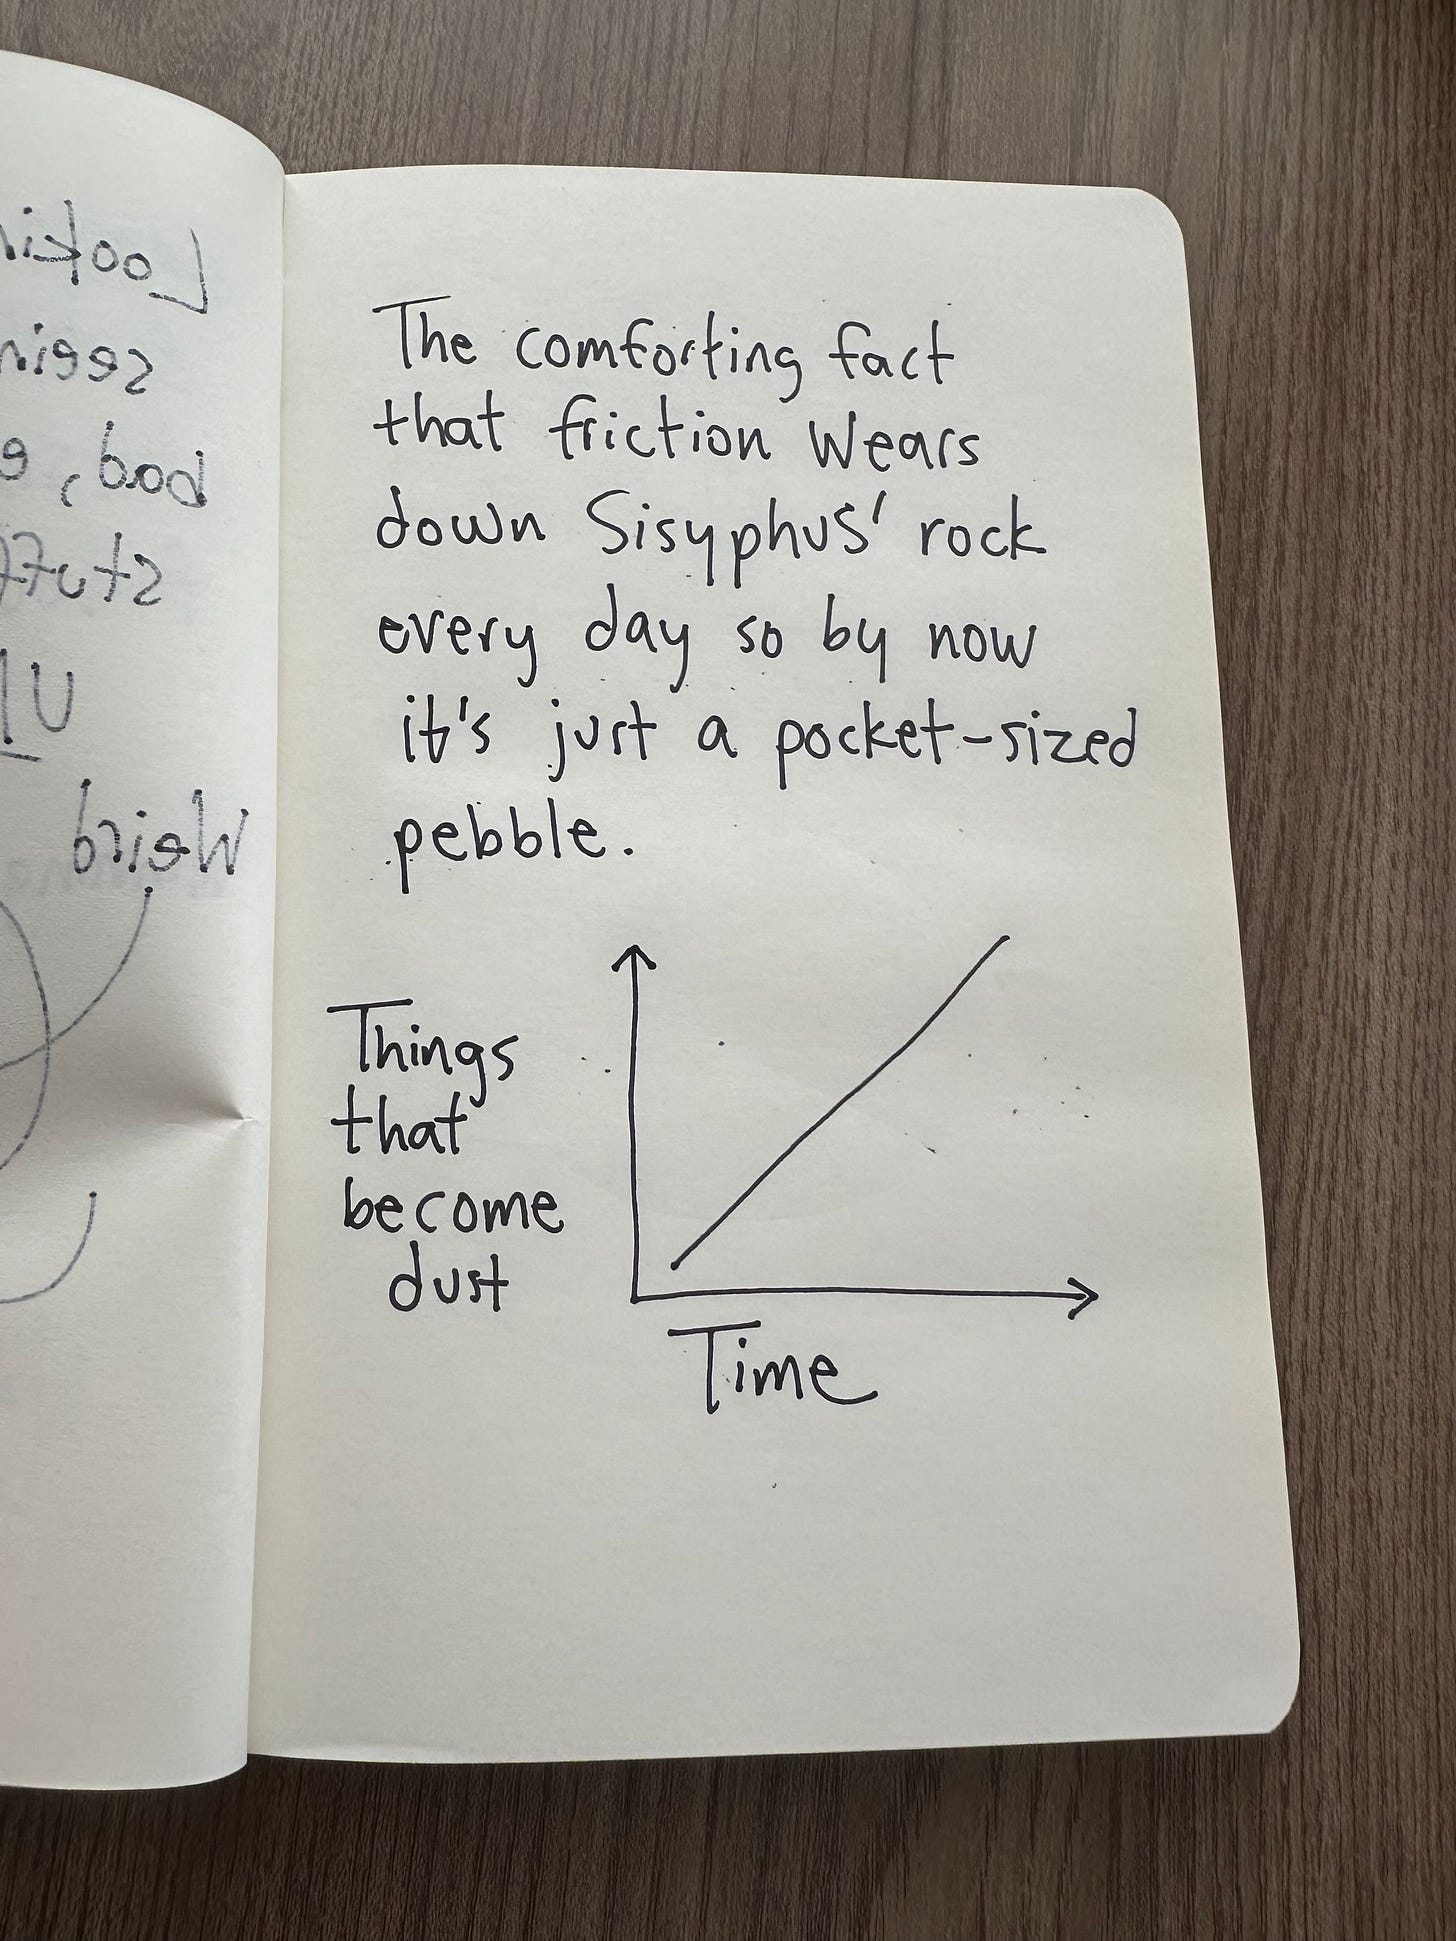 Lookin
seein
bad, e
stuff
Weird
The comforting fact
that friction wears
down Sisyphus' rock
every day so by now
it's just a pocket-sized
pebble.
Things
that
become
dust
Time